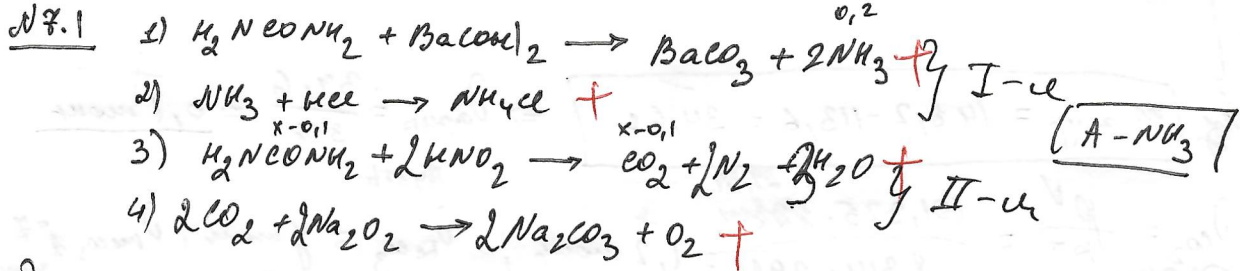 № 7.1 1) H₂NCONH₂ + Ba(OH)₂ → BaCO₃ + 2NH₃ + } I-я
0,2
2) NH₃ + HCl → NH₄Cl +
A - NH₃
x-0,1 x-0,1
3) H₂NCONH₂ + 2HNO₂ → CO₂ + 2N₂ + 3H₂O + } II-я
4) 2CO₂ + 2Na₂O₂ → 2Na₂CO₃ + O₂ +